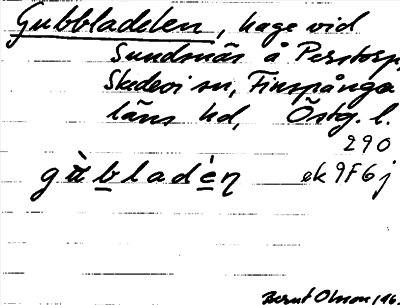 Gubbladelen, hage vid
Sundsnäs å Perstorp,
Skedevi sn, Finspånga
läns hd, Östg. l.
290
gùbladèn ek 9F6j
Bernt Olsson 196